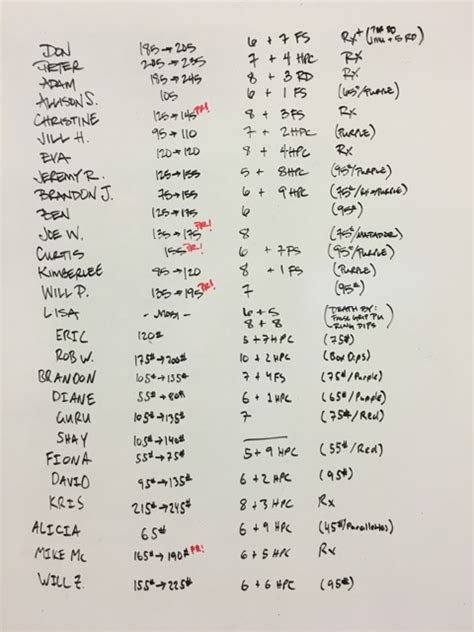 DON 185→205 6 + 7 FS Rx+
PETER 205→235 7 + 4 HPC Rx
ADAM 185→245 8 + 3 RD Rx
ALLISON S. 105 6 + 1 FS (65#/PURPLE)
CHRISTINE 125→145 PR! 8 + 3 FS Rx
JILL H. 95→110 7 + 2 HPC (PURPLE)
EVA 120→120 8 + 4 HPC Rx
JEREMY R. 125→155 5 + 8 HPC (95#/PURPLE)
BRANDON J. 75→155 6 + 9 HPC (75#/PURPLE)
ZEN 125→175 6 (95#)
JOE W. 135→175 PR! 8 (75#/MATADOR)
CURTIS 155 PR! 6 + 7FS (95#/PURPLE)
KIMBERLEE 85→120 8 + 1 FS (PURPLE)
WILL P. 135→195 PR! 7 (95#)
LISA - MOBI - 6 + 5 (DEATH BY:
8 + 8 FALSE GRIP PU RING DIPS)
ERIC 120# 5 + 7 HPC (75#)
ROB W. 175#→200# 10 + 2 HPC (Box Dips)
BRANDON 105#→135# 7 + 4FS (75#/Purple)
DIANE 55#→80# 6 + 2 HPC (65#/Purple)
GURU 105#→135# 7 (75#/Red)
SHAY 105#→140#
FIONA 55#→75# 5 + 9 HPC (55#/Red)
DAVID 95#→135# 6 + 2 HPC (95#)
KRIS 215#→245# 8 + 3 HPC Rx
ALICIA 65# 6 + 9 HPC (45#/Parallettes)
MIKE MC 165#→190# PR! 6 + 5 HPC Rx
WILL Z. 155#→225# 6 + 6 HPC (95#)